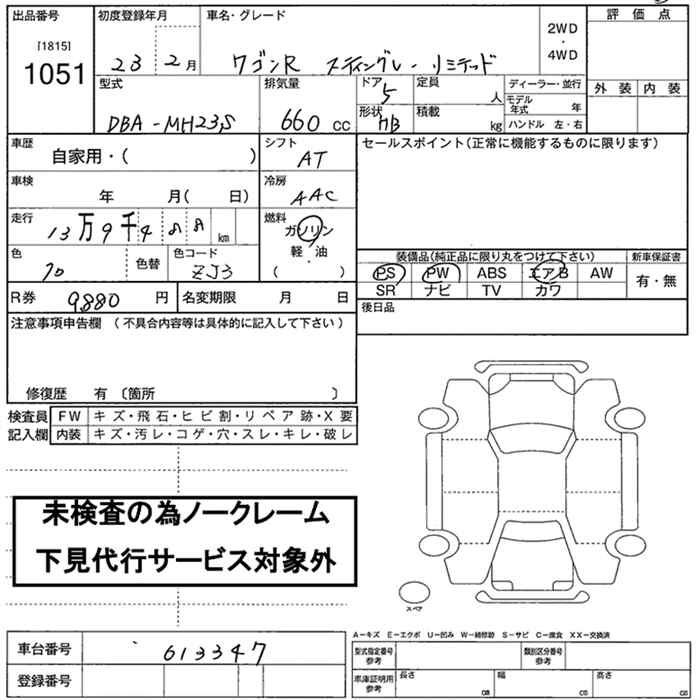 出品番号
[1815]
1051
初度登録年月
23 年 2 月
車名・グレード
ワゴンR スティングレー リミテッド
2WD
・
4WD
評価点
外装 内装
型式
DBA-MH23S
排気量
660 cc
ドア
5
形状
HB
定員
人
積載
kg
ディーラー・並行
モデル年式 年
ハンドル 左・右
車歴
自家用・( )
シフト
AT
セールスポイント(正常に機能するものに限ります)
車検
年 月( 日)
冷房
AAC
走行
13万9千4 km
燃料
ガソリン
軽・油
( )
色
色替
色コード
ZJ3
装備品(純正品に限り丸をつけて下さい)
PS PW ABS エアB AW
SR ナビ TV カワ
新車保証書
有・無
R券 9880 円
名変期限 月 日
後日品
注意事項申告欄 (不具合内容等は具体的に記入して下さい)
修復歴 有 〔箇所 〕
検査員記入欄
FW キズ・飛石・ヒビ割・リペア跡・X要
内装 キズ・汚レ・コゲ・穴・スレ・キレ・破レ
未検査の為ノークレーム
下見代行サービス対象外
スペア
車台番号 613347
登録番号
A−キズ E−エクボ U−凹み W−補修跡 S−サビ C−腐食 XX−交換済
型式指定番号 参考
類別区分番号 参考
車庫証明用 参考
長さ cm
幅 cm
高さ cm